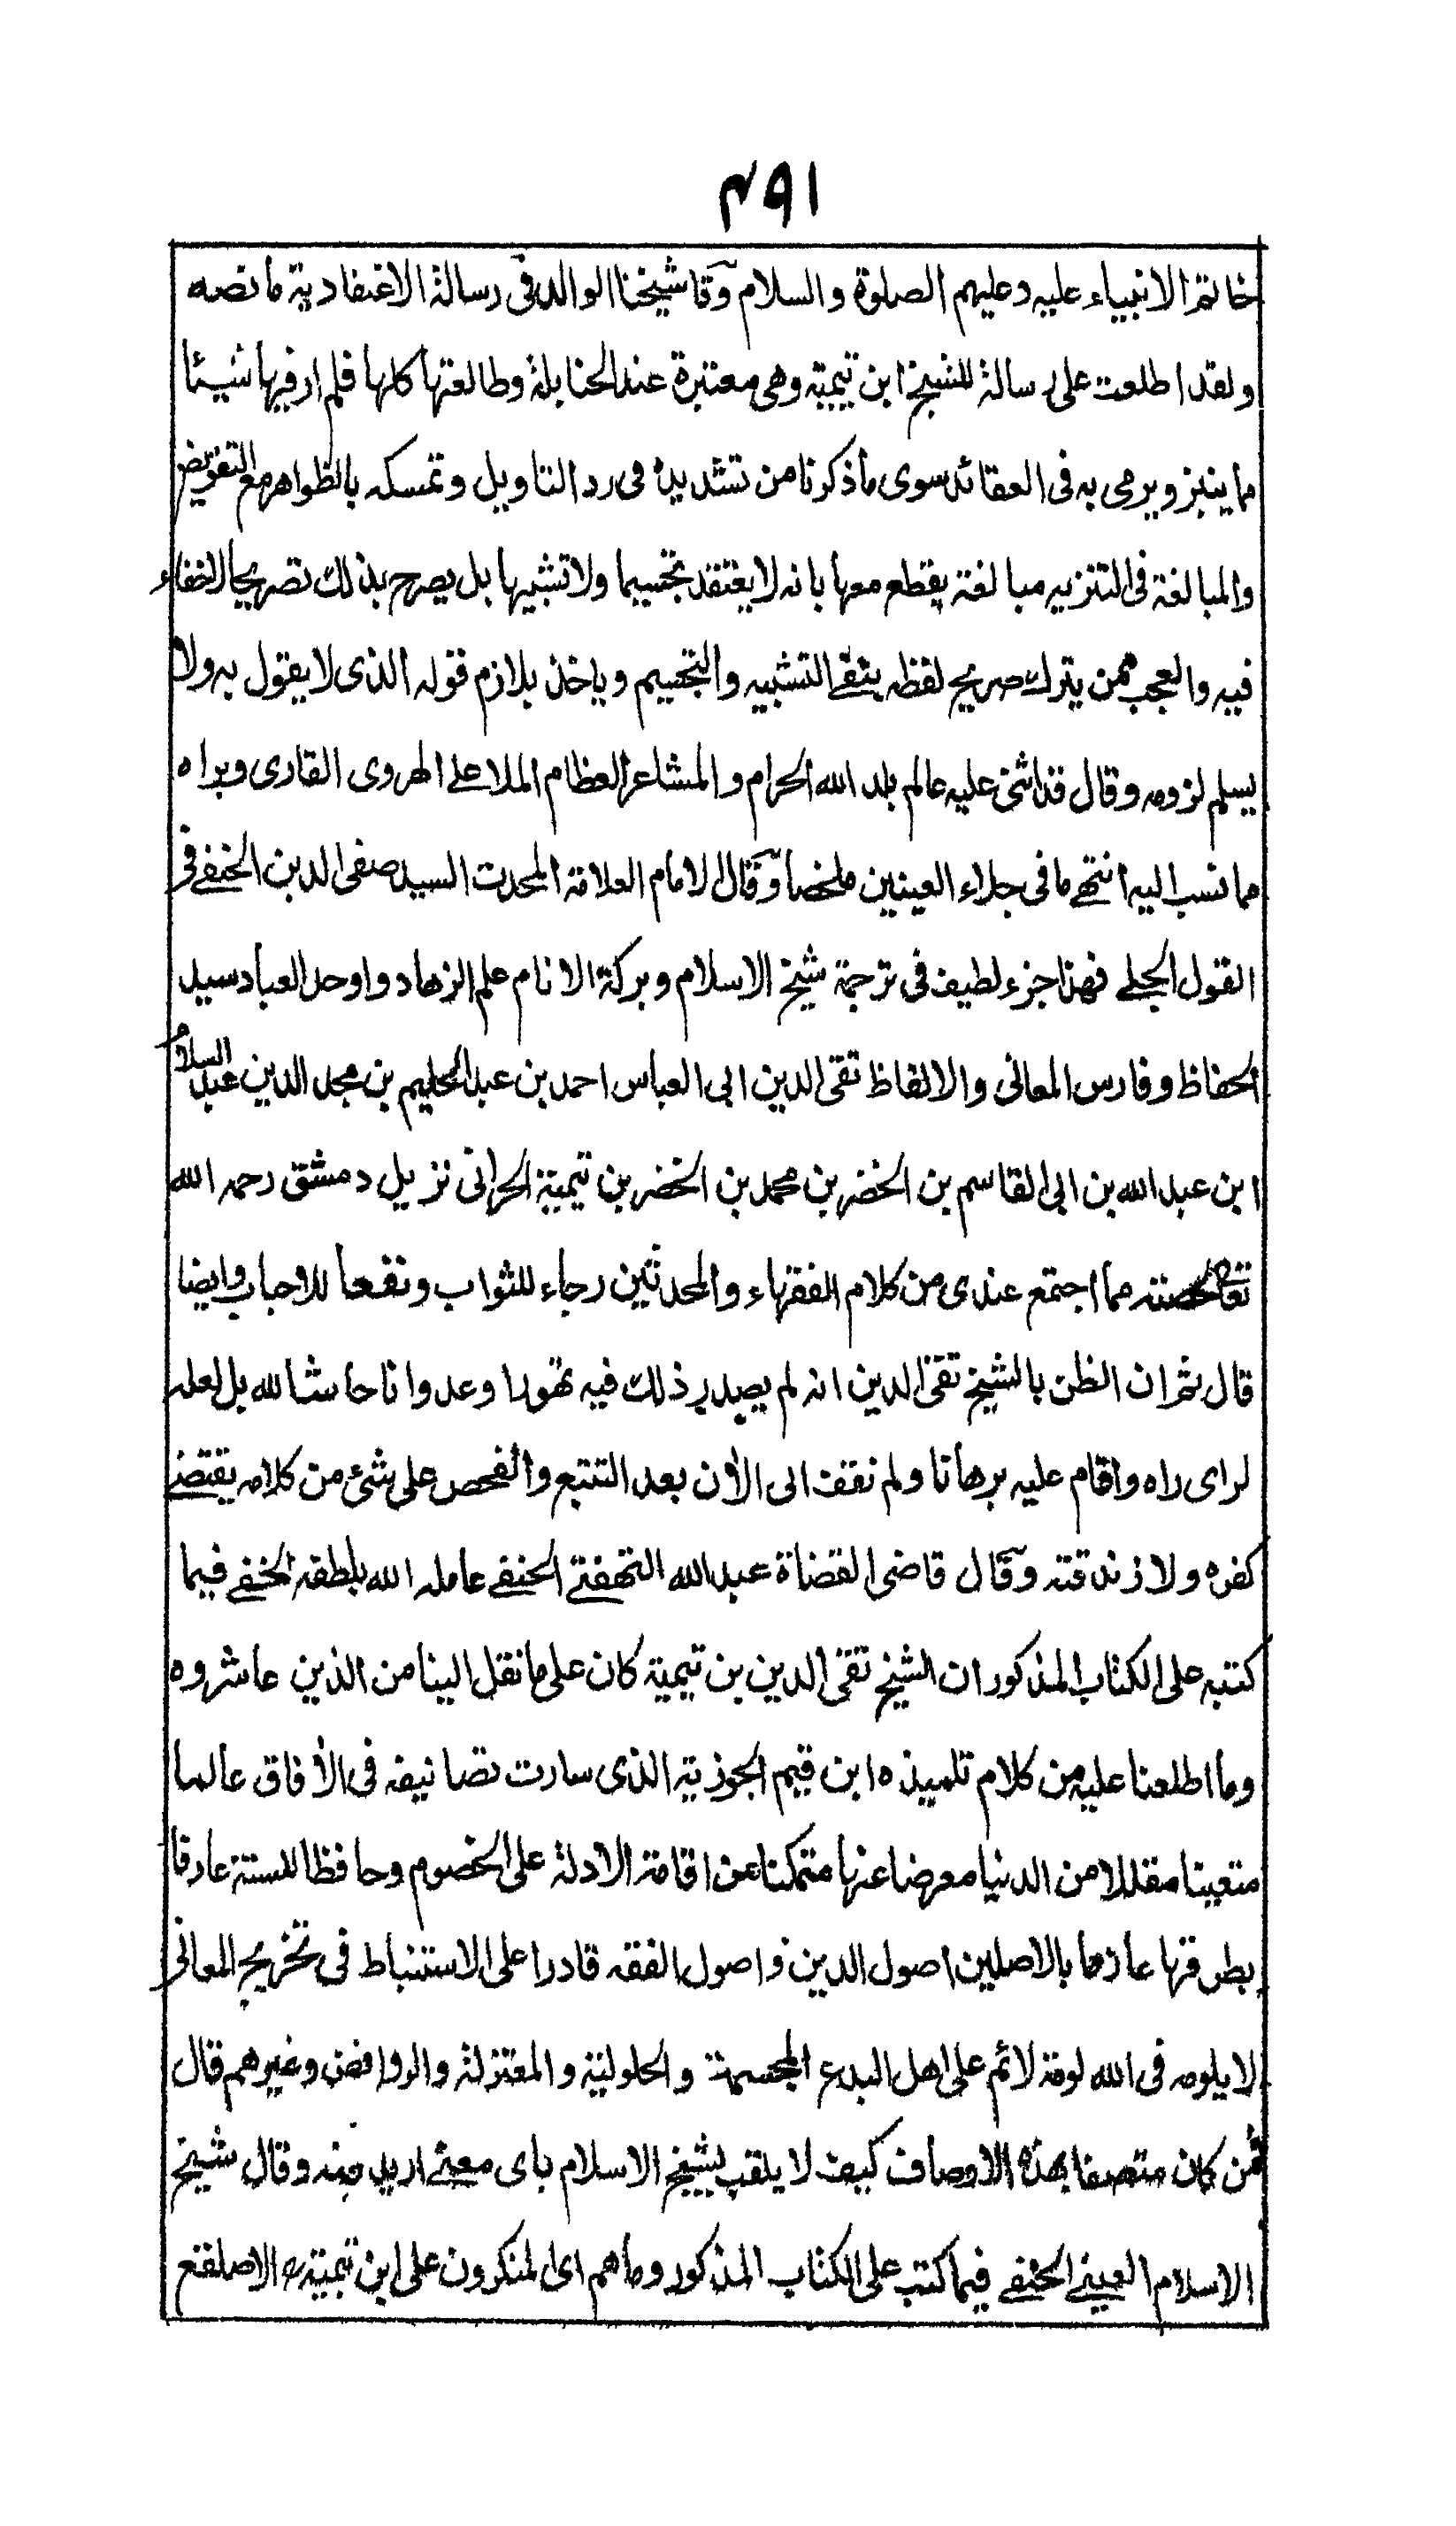 ٤٩١
خاتم الانبياء عليه وعليهم الصلوة والسلام وقا شيخنا الوالد فى رسالة الاعتقادية ما نصه
ولقد اطلعت على رسالة للشيخ ابن تيمية وهى معتبرة عند الحنابلة وطالعتها كلها فلم ار فيها شيئا
مما ينبز ويرمى به فى العقائد سوى ما ذكرنا من تشديده فى رد التاويل وتمسكه بالظواهر مع التفويض
والمبالغة فى التنزيه مبالغة يقطع معها بانه لا يعتقد تجسيما ولا تشبيها بل يصرح بذلك تصريحا لاخفاء
فيه والعجب ممن يترك صريح لفظه بنفى التشبيه والتجسيم وياخذ بلازم قوله الذى لا يقول به ولا
يسلم لزومه وقال قد اثنى عليه عالم بلد الله الحرام والمشاعر العظام الملا على الهروى القارى وبراه
مما نسب اليه انتهى ما فى جلاء العينين ملخصا وقال الامام العلامة المحدث السيد صفى الدين الحنفى فى
القول الجلى فهذا جزء لطيف فى ترجمة شيخ الاسلام وبركة الانام علم الزهاد واوحد العباد سيد
الحفاظ وفارس المعانى والالفاظ تقى الدين ابى العباس احمد بن عبد الحليم بن مجد الدين عبد السلام
ابن عبد الله بن ابى القاسم بن الخضر بن محمد بن الخضر بن تيمية الحرانى نزيل دمشق رحمه الله
تعالى لخصته مما اجتمع عندى من كلام الفقهاء والمحدثين رجاء للثواب ونفعا للاحباب وايضا
قال ثم ان الظن بالشيخ تقى الدين انه لم يصدر ذلك فيه تهورا وعدوانا حاشا لله بل لعله
لراى راه واقام عليه برهانا ولم نقف الى الأن بعد التتبع والفحص على شئ من كلامه يقتضى
كفره ولا زندقته وقال قاضى القضاة عبد الله التفهنى الحنفى عامله الله بلطفه الخفى فيما
كتبه على الكتاب المذكور ان الشيخ تقى الدين بن تيمية كان على ما نقل الينا من الذين عاشروه
وما اطلعنا عليه من كلام تلميذه ابن قيم الجوزية الذى سارت تصانيفه فى الأفاق عالما
متعينا مقللا من الدنيا معرضا عنها متمكنا من اقامة الادلة على الخصوم وحافظا للسنة عارفا
بطرقها عازما بالاصلين اصول الدين واصول الفقه قادرا على الاستنباط فى تخريج المعانى
لا يلومه فى الله لومة لائم على اهل البدع المجسمة والحلولية والمعتزلة والروافض وغيرهم قال
فمن كان متصفا بهذه الاوصاف كيف لا يلقب بشيخ الاسلام باى معنى اريد منه وقال شيخ
الاسلام العينى الحنفى فيما كتب على الكتاب المذكور وما هم اى المنكرون على ابن تيمية الا صلقع